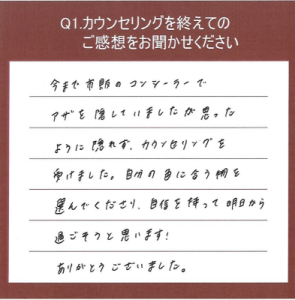 Q1.カウンセリングを終えての
ご感想をお聞かせください
今まで市販のコンシーラーで
アザを隠していましたが思った
ように隠れず、カウンセリングを
受けました。自分の色に合う物を
選んでくださり、自信を持って明日から
過ごそうと思います!
ありがとうございました。